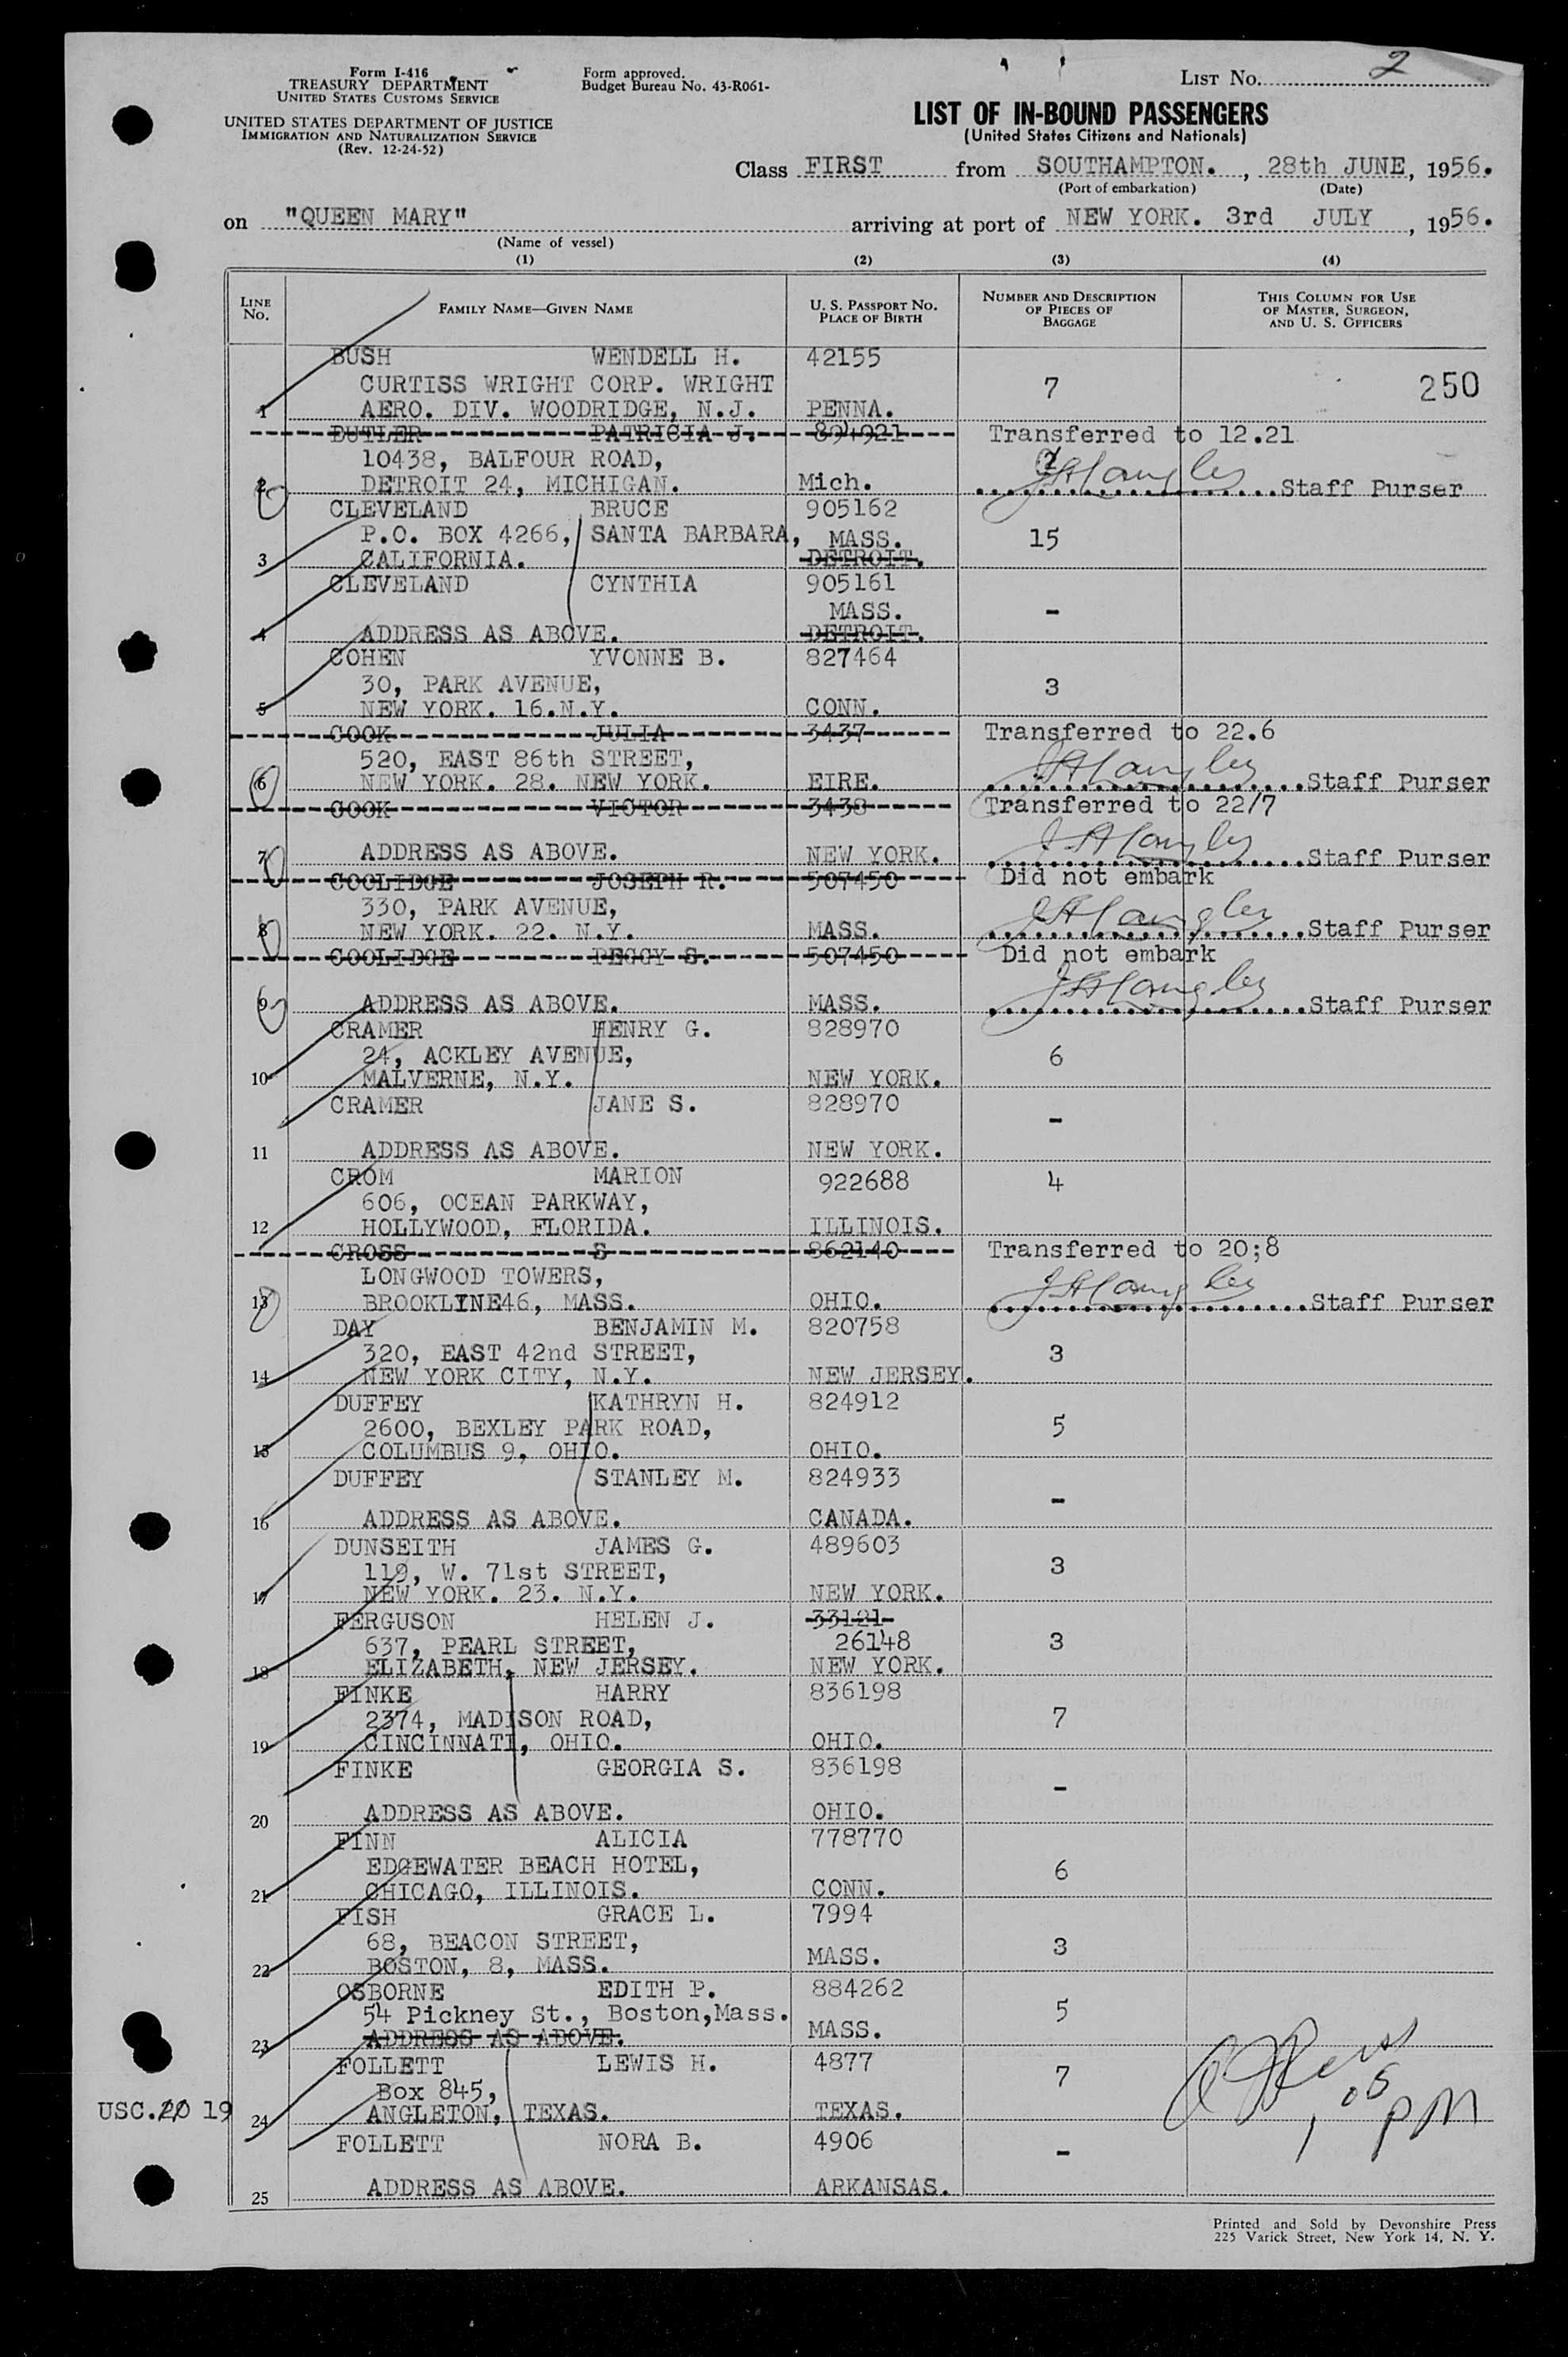 Form I-416
TREASURY DEPARTMENT
UNITED STATES CUSTOMS SERVICE
UNITED STATES DEPARTMENT OF JUSTICE
IMMIGRATION AND NATURALIZATION SERVICE
(Rev. 12-24-52)
Form approved.
Budget Bureau No. 43-R061-
LIST No. 2
LIST OF IN-BOUND PASSENGERS
(United States Citizens and Nationals)
Class FIRST from SOUTHAMPTON. , 28th JUNE, 1956.
(Port of embarkation) (Date)
on "QUEEN MARY" arriving at port of NEW YORK. 3rd JULY , 1956.
(Name of vessel)
(1) (2) (3) (4)
LINE No. FAMILY NAME—GIVEN NAME U. S. PASSPORT No. PLACE OF BIRTH NUMBER AND DESCRIPTION OF PIECES OF BAGGAGE THIS COLUMN FOR USE OF MASTER, SURGEON, AND U. S. OFFICERS
BUSH WENDELL H. 42155
CURTISS WRIGHT CORP. WRIGHT 7 250
1 AERO. DIV. WOODRIDGE, N.J. PENNA.
BUTLER PATRICIA J. 894921 Transferred to 12.21
10438, BALFOUR ROAD,
2 DETROIT 24, MICHIGAN. Mich. Staff Purser
CLEVELAND BRUCE 905162
P.O. BOX 4266, SANTA BARBARA, MASS. 15
3 CALIFORNIA. DETROIT.
CLEVELAND CYNTHIA 905161
MASS. -
4 ADDRESS AS ABOVE. DETROIT.
COHEN YVONNE B. 827464
30, PARK AVENUE, 3
5 NEW YORK. 16.N.Y. CONN.
COOK JULIA 3437 Transferred to 22.6
520, EAST 86th STREET,
6 NEW YORK. 28. NEW YORK. EIRE. Staff Purser
COOK VICTOR 3438 Transferred to 22/7
7 ADDRESS AS ABOVE. NEW YORK. Staff Purser
COOLIDGE JOSEPH R. 507450 Did not embark
330, PARK AVENUE,
8 NEW YORK. 22. N.Y. MASS. Staff Purser
COOLIDGE PEGGY S. 507450 Did not embark
9 ADDRESS AS ABOVE. MASS. Staff Purser
CRAMER HENRY G. 828970
24, ACKLEY AVENUE, 6
10 MALVERNE, N.Y. NEW YORK.
CRAMER JANE S. 828970
-
11 ADDRESS AS ABOVE. NEW YORK.
CROM MARION 922688 4
606, OCEAN PARKWAY,
12 HOLLYWOOD, FLORIDA. ILLINOIS.
CROSS S 862140 Transferred to 20;8
LONGWOOD TOWERS,
13 BROOKLINE46, MASS. OHIO. Staff Purser
DAY BENJAMIN M. 820758
320, EAST 42nd STREET, 3
14 NEW YORK CITY, N.Y. NEW JERSEY.
DUFFEY KATHRYN H. 824912
2600, BEXLEY PARK ROAD, 5
15 COLUMBUS 9, OHIO. OHIO.
DUFFEY STANLEY M. 824933
-
16 ADDRESS AS ABOVE. CANADA.
DUNSEITH JAMES G. 489603
119, W. 71st STREET, 3
17 NEW YORK. 23. N.Y. NEW YORK.
FERGUSON HELEN J. 33121
637, PEARL STREET, 26148 3
18 ELIZABETH, NEW JERSEY. NEW YORK.
FINKE HARRY 836198
2374, MADISON ROAD, 7
19 CINCINNATI, OHIO. OHIO.
FINKE GEORGIA S. 836198
-
20 ADDRESS AS ABOVE. OHIO.
FINN ALICIA 778770
EDGEWATER BEACH HOTEL, 6
21 CHICAGO, ILLINOIS. CONN.
FISH GRACE L. 7994
68, BEACON STREET, 3
22 BOSTON, 8, MASS. MASS.
OSBORNE EDITH P. 884262
54 Pickney St., Boston,Mass. 5
23 ADDRESS AS ABOVE. MASS.
FOLLETT LEWIS H. 4877 7
Box 845,
USC. 20 19 24 ANGLETON, TEXAS. TEXAS. 1,05 PM
FOLLETT NORA B. 4906
-
25 ADDRESS AS ABOVE. ARKANSAS.
Printed and Sold by Devonshire Press
225 Varick Street, New York 14, N. Y.